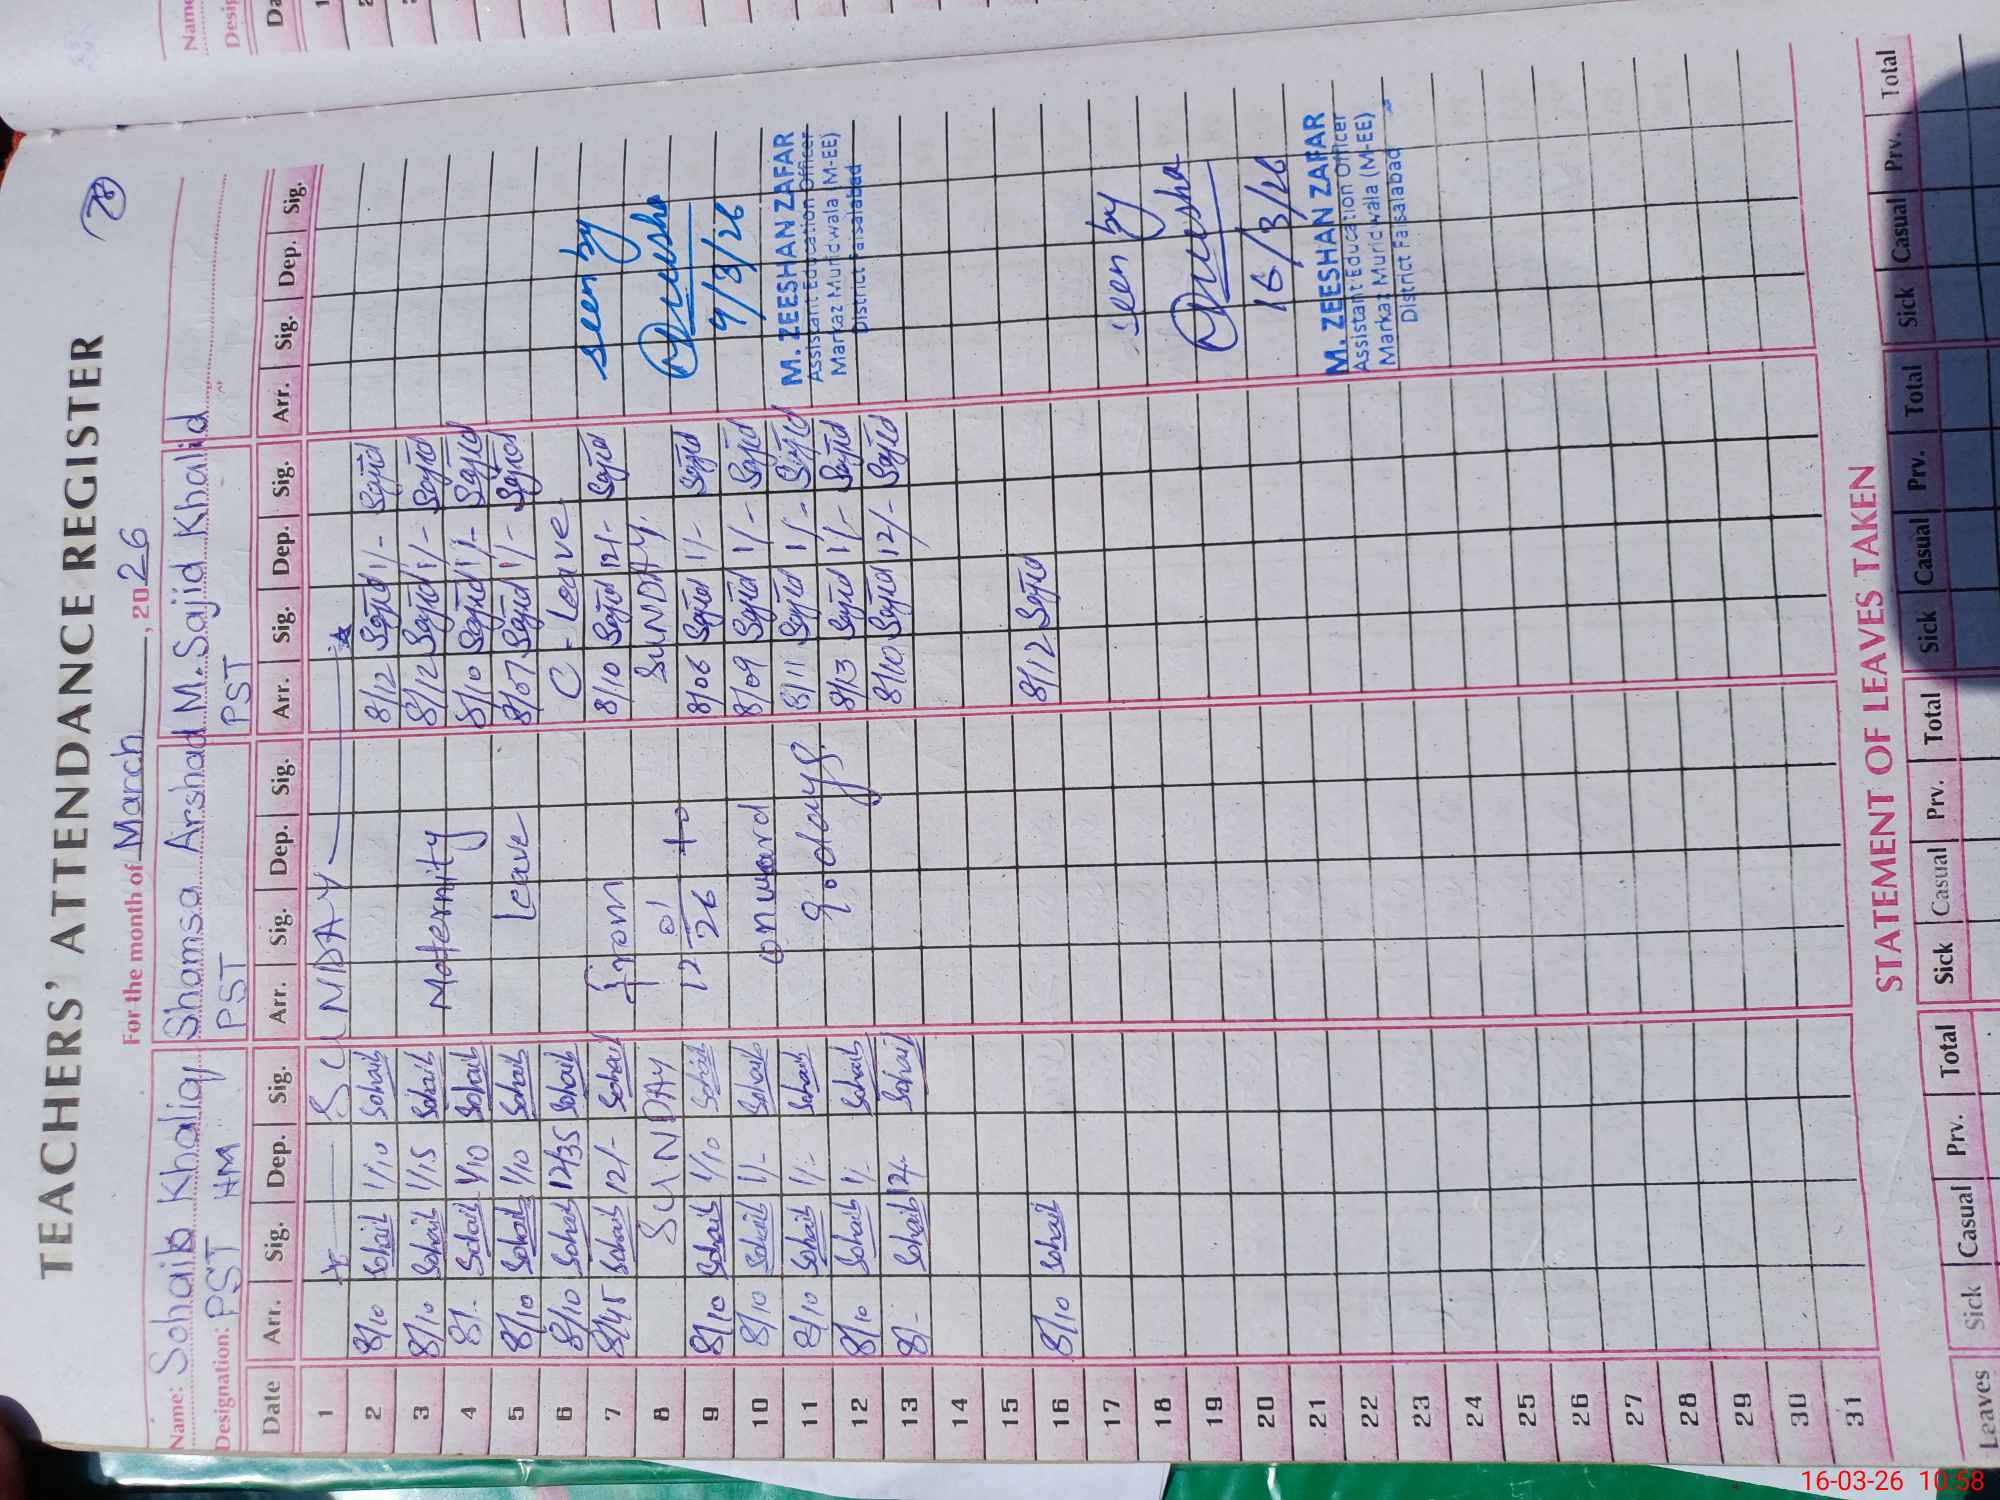 78
TEACHERS' ATTENDANCE REGISTER
For the month of March, 2026
Name: Sohaib Khaliq Shamsa Arshad M. Sajid Khalid
Designation: PST HM PST PST
Date Arr. Sig. Dep. Sig. Arr. Sig. Dep. Sig. Arr. Sig. Dep. Sig. Arr. Sig. Dep. Sig.
1 SUNDAY
2 8/10 Sohaib 1/10 Sohaib 8/12 Sajid 1/- Sajid
3 8/10 Sohaib 1/15 Sohaib Maternity 8/12 Sajid 1/- Sajid
4 8/- Sohaib 1/10 Sohaib 8/10 Sajid 1/- Sajid
5 8/10 Sohaib 1/10 Sohaib Leave 8/07 Sajid 1/- Sajid
6 8/10 Sohaib 12/35 Sohaib C-Leave
7 8/45 Sohaib 12/- Sohaib from 8/10 Sajid 12/- Sajid seen by
8 SUNDAY SUNDAY
9 8/10 Sohaib 1/10 Sohaib 12 01/26 to 8/06 Sajid 1/- Sajid 9/3/26
10 8/10 Sohaib 1/- Sohaib onward 8/09 Sajid 1/- Sajid
11 8/10 Sohaib 1/- Sohaib 90 days 8/11 Sajid 1/- Sajid
12 8/10 Sohaib 1/- Sohaib 8/13 Sajid 1/- Sajid
13 8/- Sohaib 12/- Sohaib 8/10 Sajid 12/- Sajid
M. ZEESHAN ZAFAR
Assistant Education Officer
Markaz Muridwala (M-EE)
District Faisalabad
14
15
16 8/10 Sohaib 8/12 Sajid
17 seen by
18
19
20 16/3/26
21
M. ZEESHAN ZAFAR
Assistant Education Officer
Markaz Muridwala (M-EE)
District Faisalabad
22
23
24
25
26
27
28
29
30
31
STATEMENT OF LEAVES TAKEN
Leaves Sick Casual Prv. Total Sick Casual Prv. Total Sick Casual Prv. Total Sick Casual Prv. Total
Name
Desig
Da
1
2
3
16-03-26 10:58